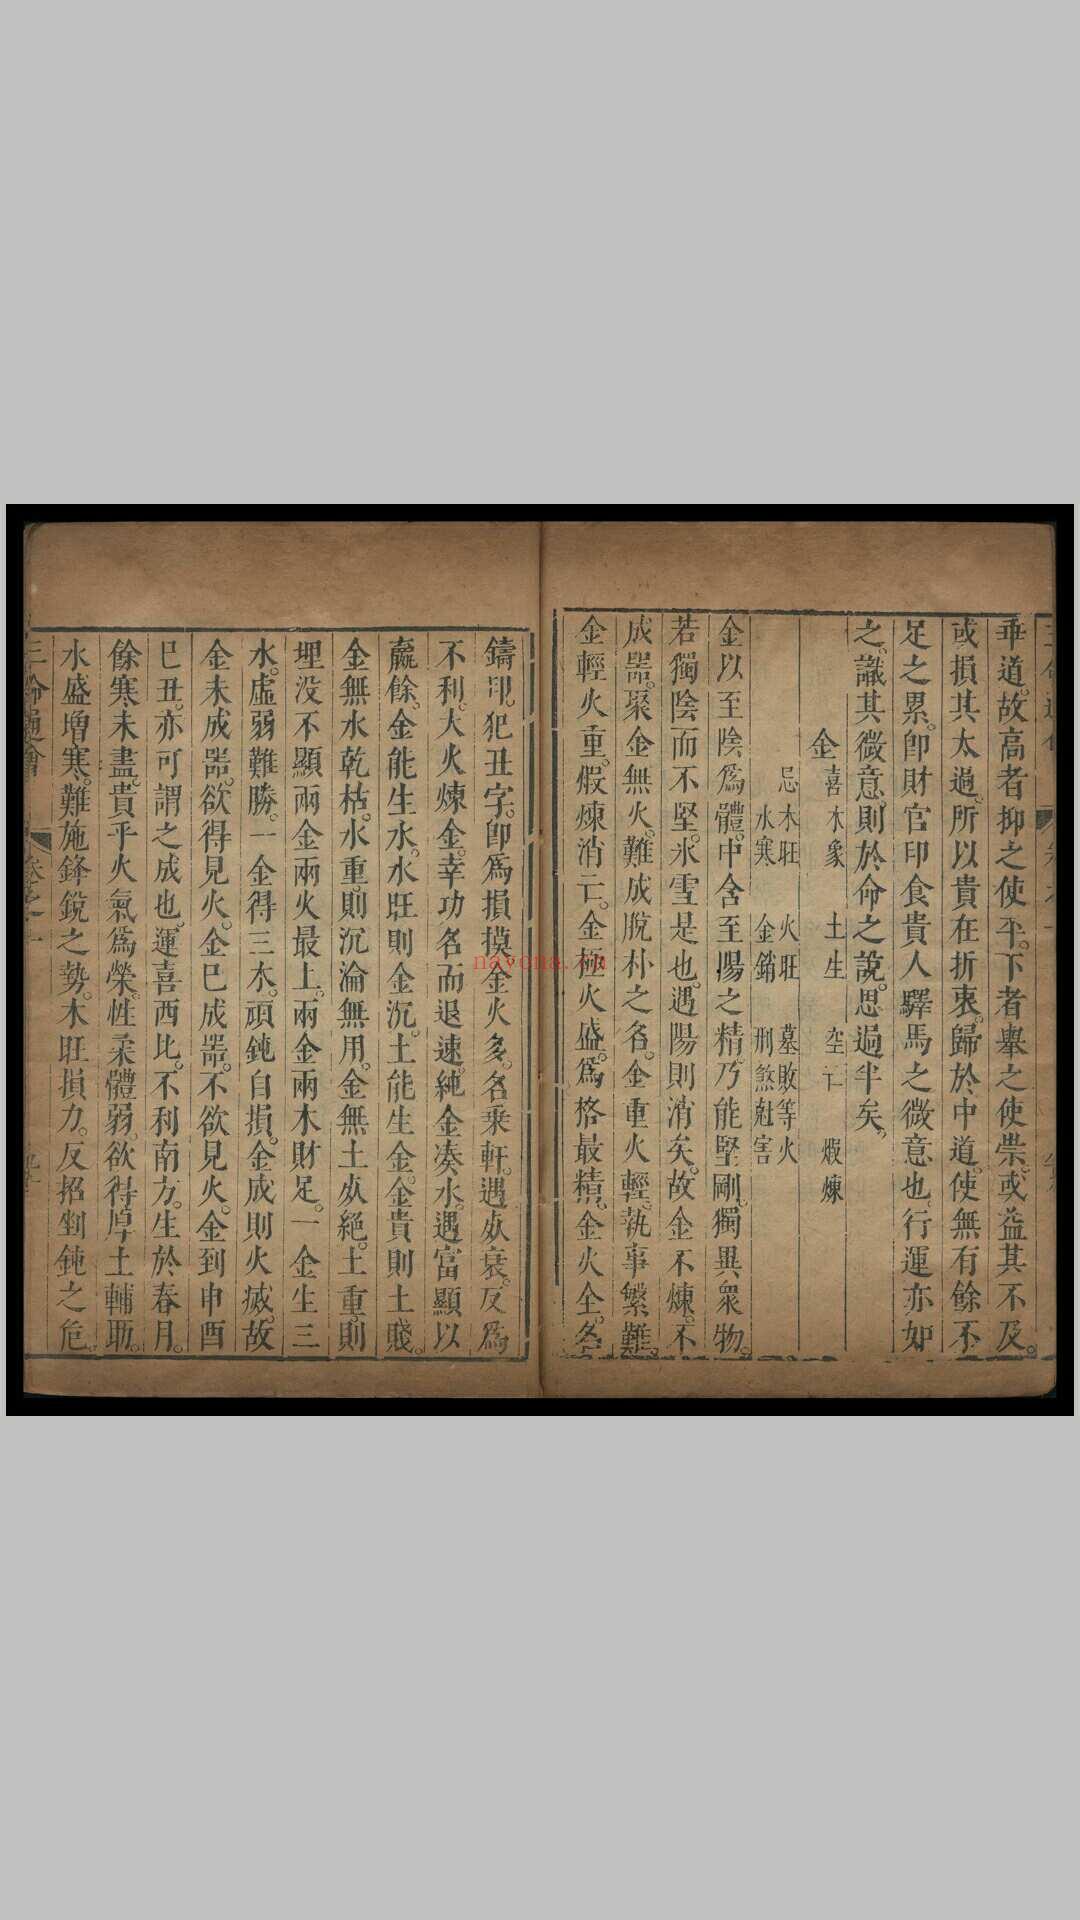 乖道。故高者抑之使平。下者舉之使崇。或益其不及。
或損其太過。所以貴在折衷。歸於中道。使無有餘不
足之累。卽財官印食貴人驛馬之微意也。行運亦如
之。識其微意。則於命之說。思過半矣。
金 喜 木象 土生 空亡 煆煉
忌 木旺 火旺 墓敗等火
水寒 金銷 刑煞尅害
金以至陰爲體。中含至陽之精。乃能堅剛。獨異衆物。
若獨陰而不堅。氷雪是也。遇陽則消矣。故金不煉。不
成噐。聚金無火。難成脫朴之名。金重火輕。執事繁難。
金輕火重。煆煉消亡。金極火盛。爲格最精。金火全。名
鑄印。犯丑字。卽爲損摸。金火多。名乘軒。遇死衰。反爲
不利。大火煉金。幸功名而退速。純金凑水。遇富顯以
贏餘。金能生水。水旺則金沉。土能生金。金貴則土賤。
金無水乾枯。水重。則沉淪無用。金無土死絕。土重。則
埋没不顯。兩金兩火最上。兩金兩木財足。一金生三
水。虛弱難勝。一金得三木。頑鈍自損。金成則火滅。故
金未成噐。欲得見火。金已成噐。不欲見火。金到申酉
巳丑。亦可謂之成也。運喜西北。不利南方。生於春月。
餘寒未盡。貴乎火氣爲榮。性柔體弱。欲得厚土輔助。
水盛增寒。難施鋒銳之勢。木旺損力。反招剉鈍之危。
三命通會